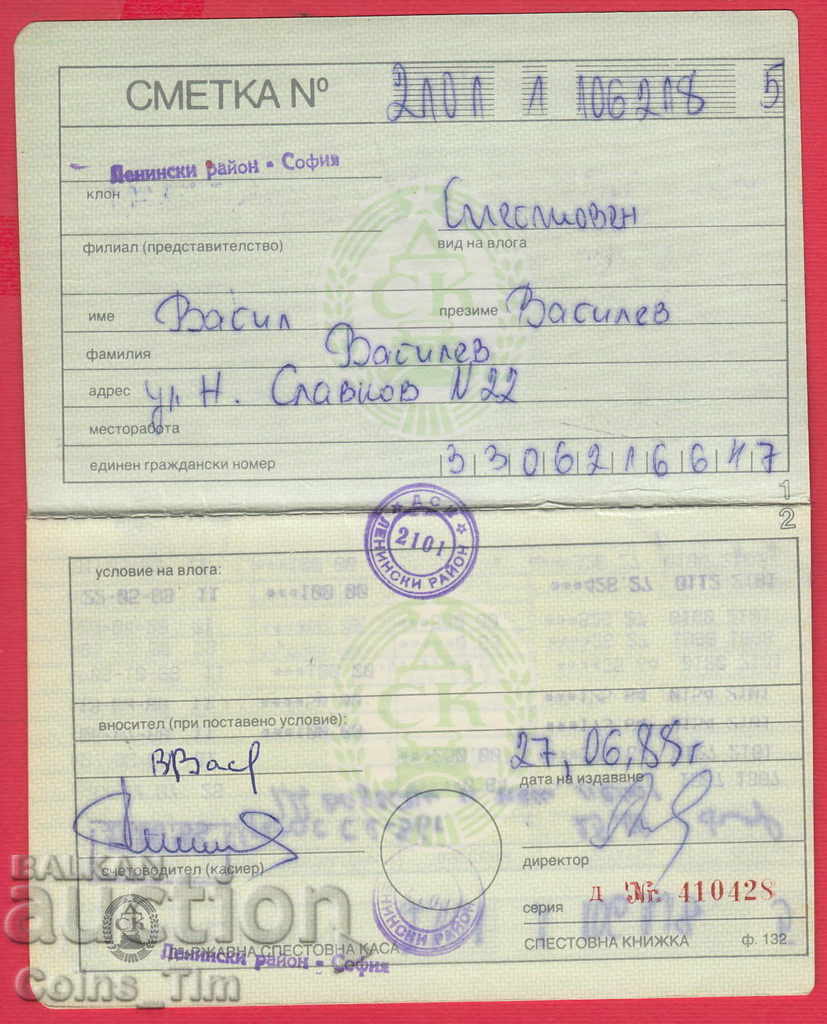 СМЕТКА № 2101 1 106218 5
Ленински район - София
клон
Спестовен
филиал (представителство) вид на влога
име Васил презиме Василев
фамилия Василев
адрес ул Н. Славков N 22
месторабота
единен граждански номер 3306216647
1
2
ДСК
2101
ЛЕНИНСКИ РАЙОН
условие на влога:
ДСК
вносител (при поставено условие):
ВВас
27,06,88г
дата на издаване
счетоводител (касиер)
директор
серия Д № 410428
ДЪРЖАВНА СПЕСТОВНА КАСА
СПЕСТОВНА КНИЖКА ф. 132
Ленински район - София
BALKAN
auction
Coins_Tim